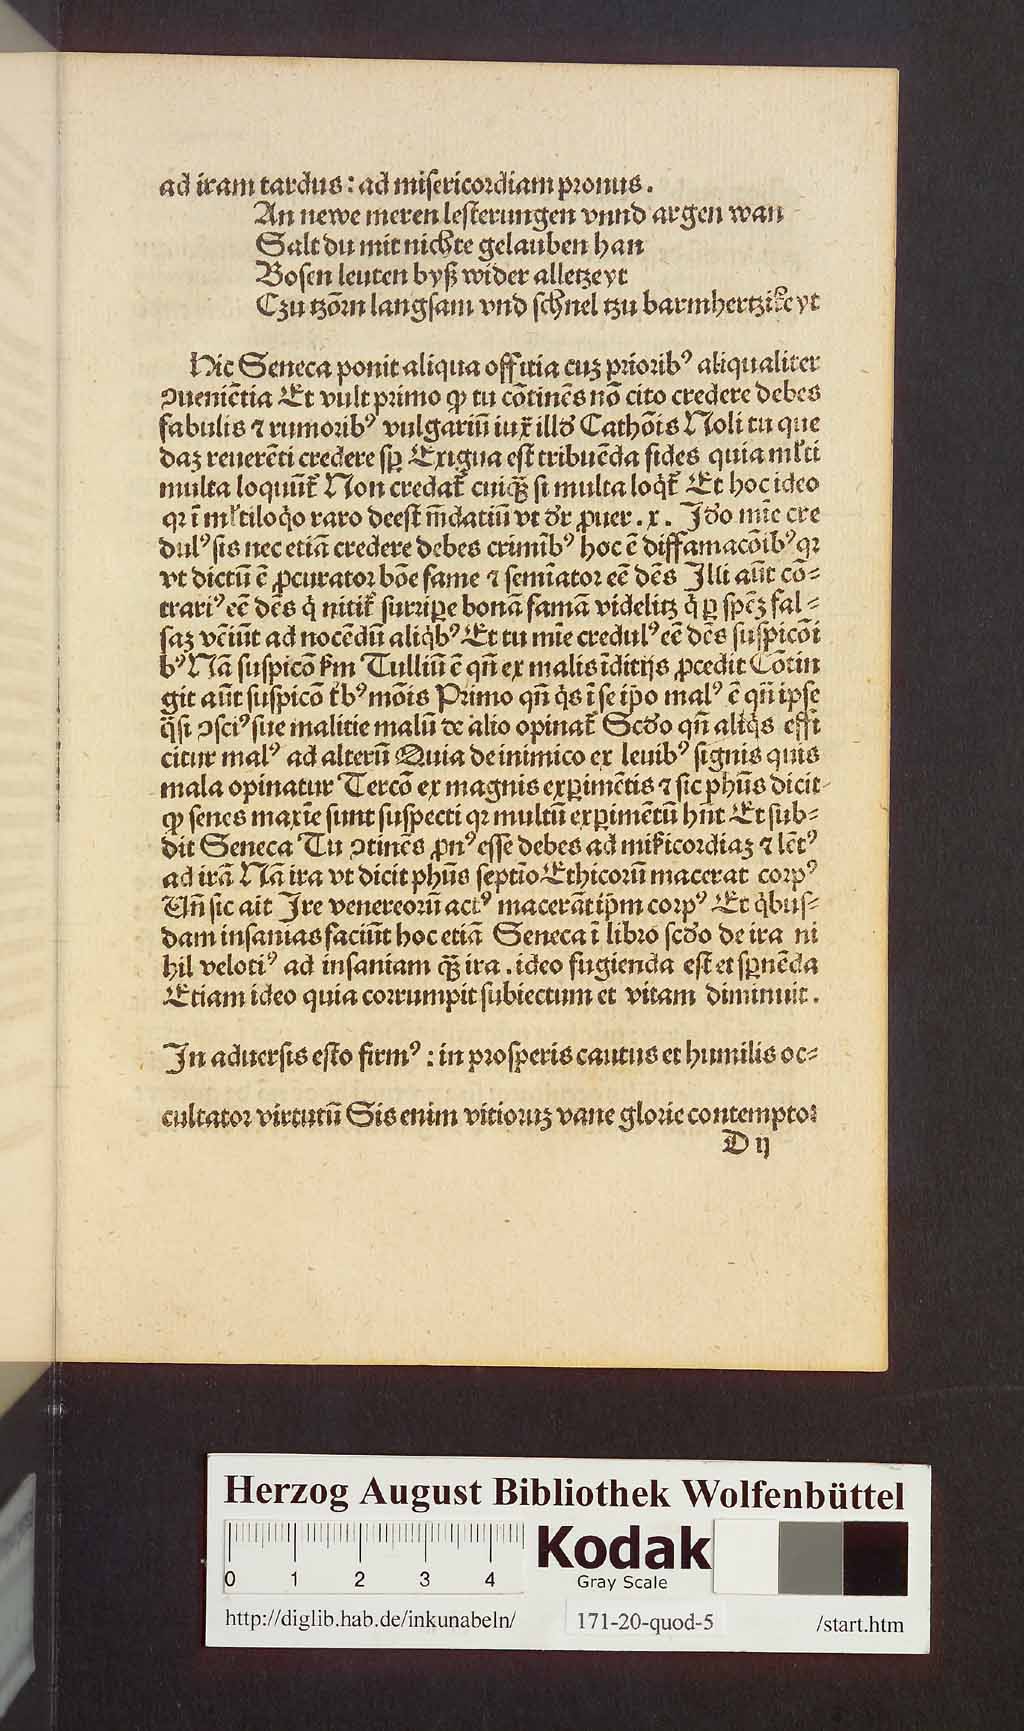 ad iram tardus : ad misericordiam pronus .
An newe meren lesterungen vnnd argen wan
Salt du mit nichte gelauben han
Bosen leuten byß wider alletzeyt
Czu tzōrn langsam vnd schnel tzu barmhertzikeyt
Hic Seneca ponit aliqua offitia cuȝ prioribꝰ aliqualiter
ꝯueniētia Et vult primo ꝙ tu cōtinēs nō cito credere debes
fabulis ⁊ rumoribꝰ vulgariū iux̄ illđ Cathōis Noli tu que
daȝ reuerēti credere sꝑ Exigua est tribuēda fides quia ml̓ti
multa loquūt̄ Non credat̄ cuiꝗ̄ si multa loq̇t̄ Et hoc ideo
qꝛ ī ml̓tiloq̇o raro deest m̄datiū vt dr̄ ꝓuer . x . Jđo mīe cre
dulꝰ sis nec etiā credere debes crimībꝰ hoc ē diffamacōībꝰ qꝛ
vt dictū ē ꝓcurator bōe fame ⁊ semīator eē dēs Illi aūt cō-
trariꝰ eē dēs q̇ nitit̄ surripe bonā famā videlitȝ q̇ ꝑ spēȝ fal-
saȝ vēiūt ad nocēdū aliq̇bꝰ Et tu mīe credulꝰ eē dēs suspicōi
bꝰ Nā suspicō ẜm Tulliū ē qn̄ ex malis īditijs ꝓcedit Cōtin
git aūt suspicō t̓bꝰ mōis Primo qn̄ q̇s ī se ip̄o malꝰ ē qn̄ ipse
q̄si ꝯsciꝰ sue malitie malū de alio opinat̄ Scđo qn̄ aliq̇s effi
citur malꝰ ad alterū Quia de inimico ex leuibꝰ signis quis
mala opinatur Tercō ex magnis exꝑimētis ⁊ sic ph̄us dicit
ꝙ senes maxīe sunt suspecti qꝛ multū exꝑimētū hn̄t Et sub-
dit Seneca Tu ꝯtinēs ꝓnꝰ esse debes ad mīsicordiaȝ ⁊ lētꝰ
ad irā Nā ira vt dicit ph̄us septīo Ethicorū macerat corpꝰ
Un̄ sic ait Ire venereorū actꝰ macerāt ip̄m corpꝰ Et q̇bus-
dam insanias faciūt hoc etiā Seneca ī libro scđo de ira ni
hil velotiꝰ ad insaniam ꝗ̄ ira . ideo fugienda est et sꝑnēda
Etiam ideo quia corrumpit subiectum et vitam diminuit .
In aduersis esto firmꝰ : in prosperis cautus et humilis oc-
cultator virtutū Sis enim vitioruȝ vane glorie contemptor
D ij
Herzog August Bibliothek Wolfenbüttel
0 1 2 3 4
Kodak
Gray Scale
http://diglib.hab.de/inkunabeln/ 171-20-quod-5 /start.htm